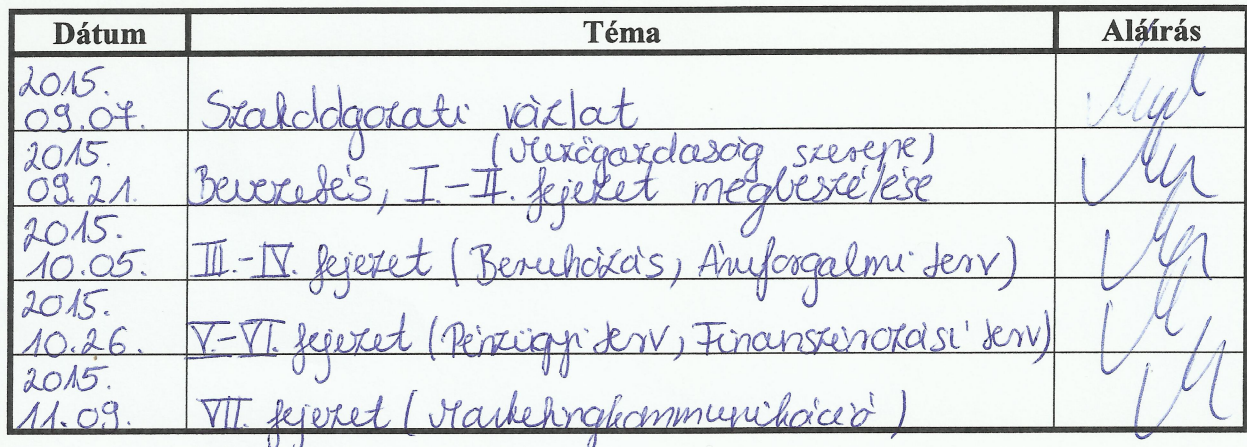 Dátum Téma Aláírás
2015.
09.07. Szakdolgozati vázlat
2015. (Mezőgazdaság szerepe)
09.21. Bevezetés, I.-II. fejezet megbeszélése
2015.
10.05. III.-IV. fejezet (Beruházás, Áruforgalmi terv)
2015.
10.26. V.-VI. fejezet (Pénzügyi terv, Finanszírozási terv)
2015.
11.09. VII. fejezet (Marketingkommunikáció)